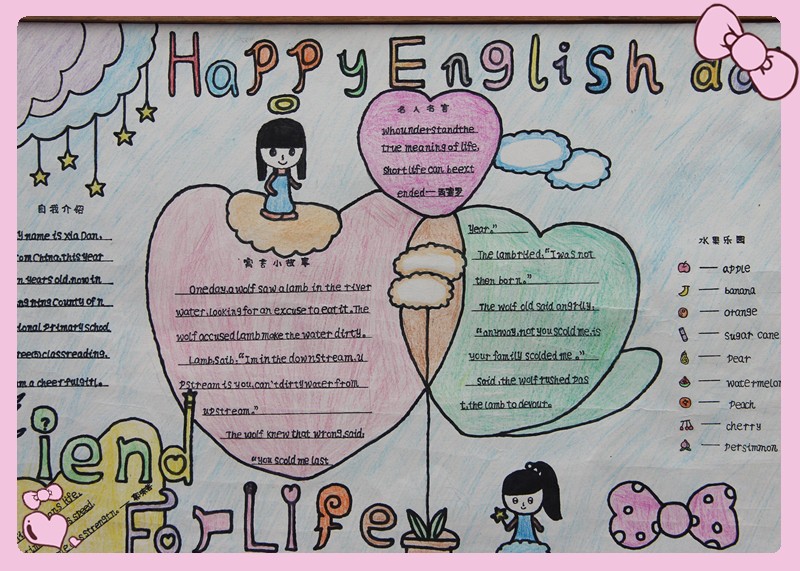 Happy English da
名人名言
whounderstandthe
true meaning of life,
short life can be ext
ended——西塞罗
自我介绍
y name is Xia Dan,
om China.this year
n years old.now in
ional Primary school
reemclassreading.
am a cheerfulgirl.
寓言小故事
One day,a wolf saw a lamb in the river
water,looking for an excuse to eat it.The
wolf accused lamb make the water dirty.
Lamb,Saib:"I'm in the downStream,u
pstream is you,can't dirty water from
upstream."
The wolf knew that wrong,said:
"you scold me last
year."
The lamb tried,"I was not
then born."
The wolf old said angrily,
"anyway,not you scold me,is
your family scolded me."
Said,the wolf rushed pas
t,the lamb to devour.
水果乐园
—— apple
—— banana
—— orange
—— Sugar cane
—— pear
—— watermelon
—— peach
—— cherry
—— persimmon
iend
For Life
life.
speed.
strength.